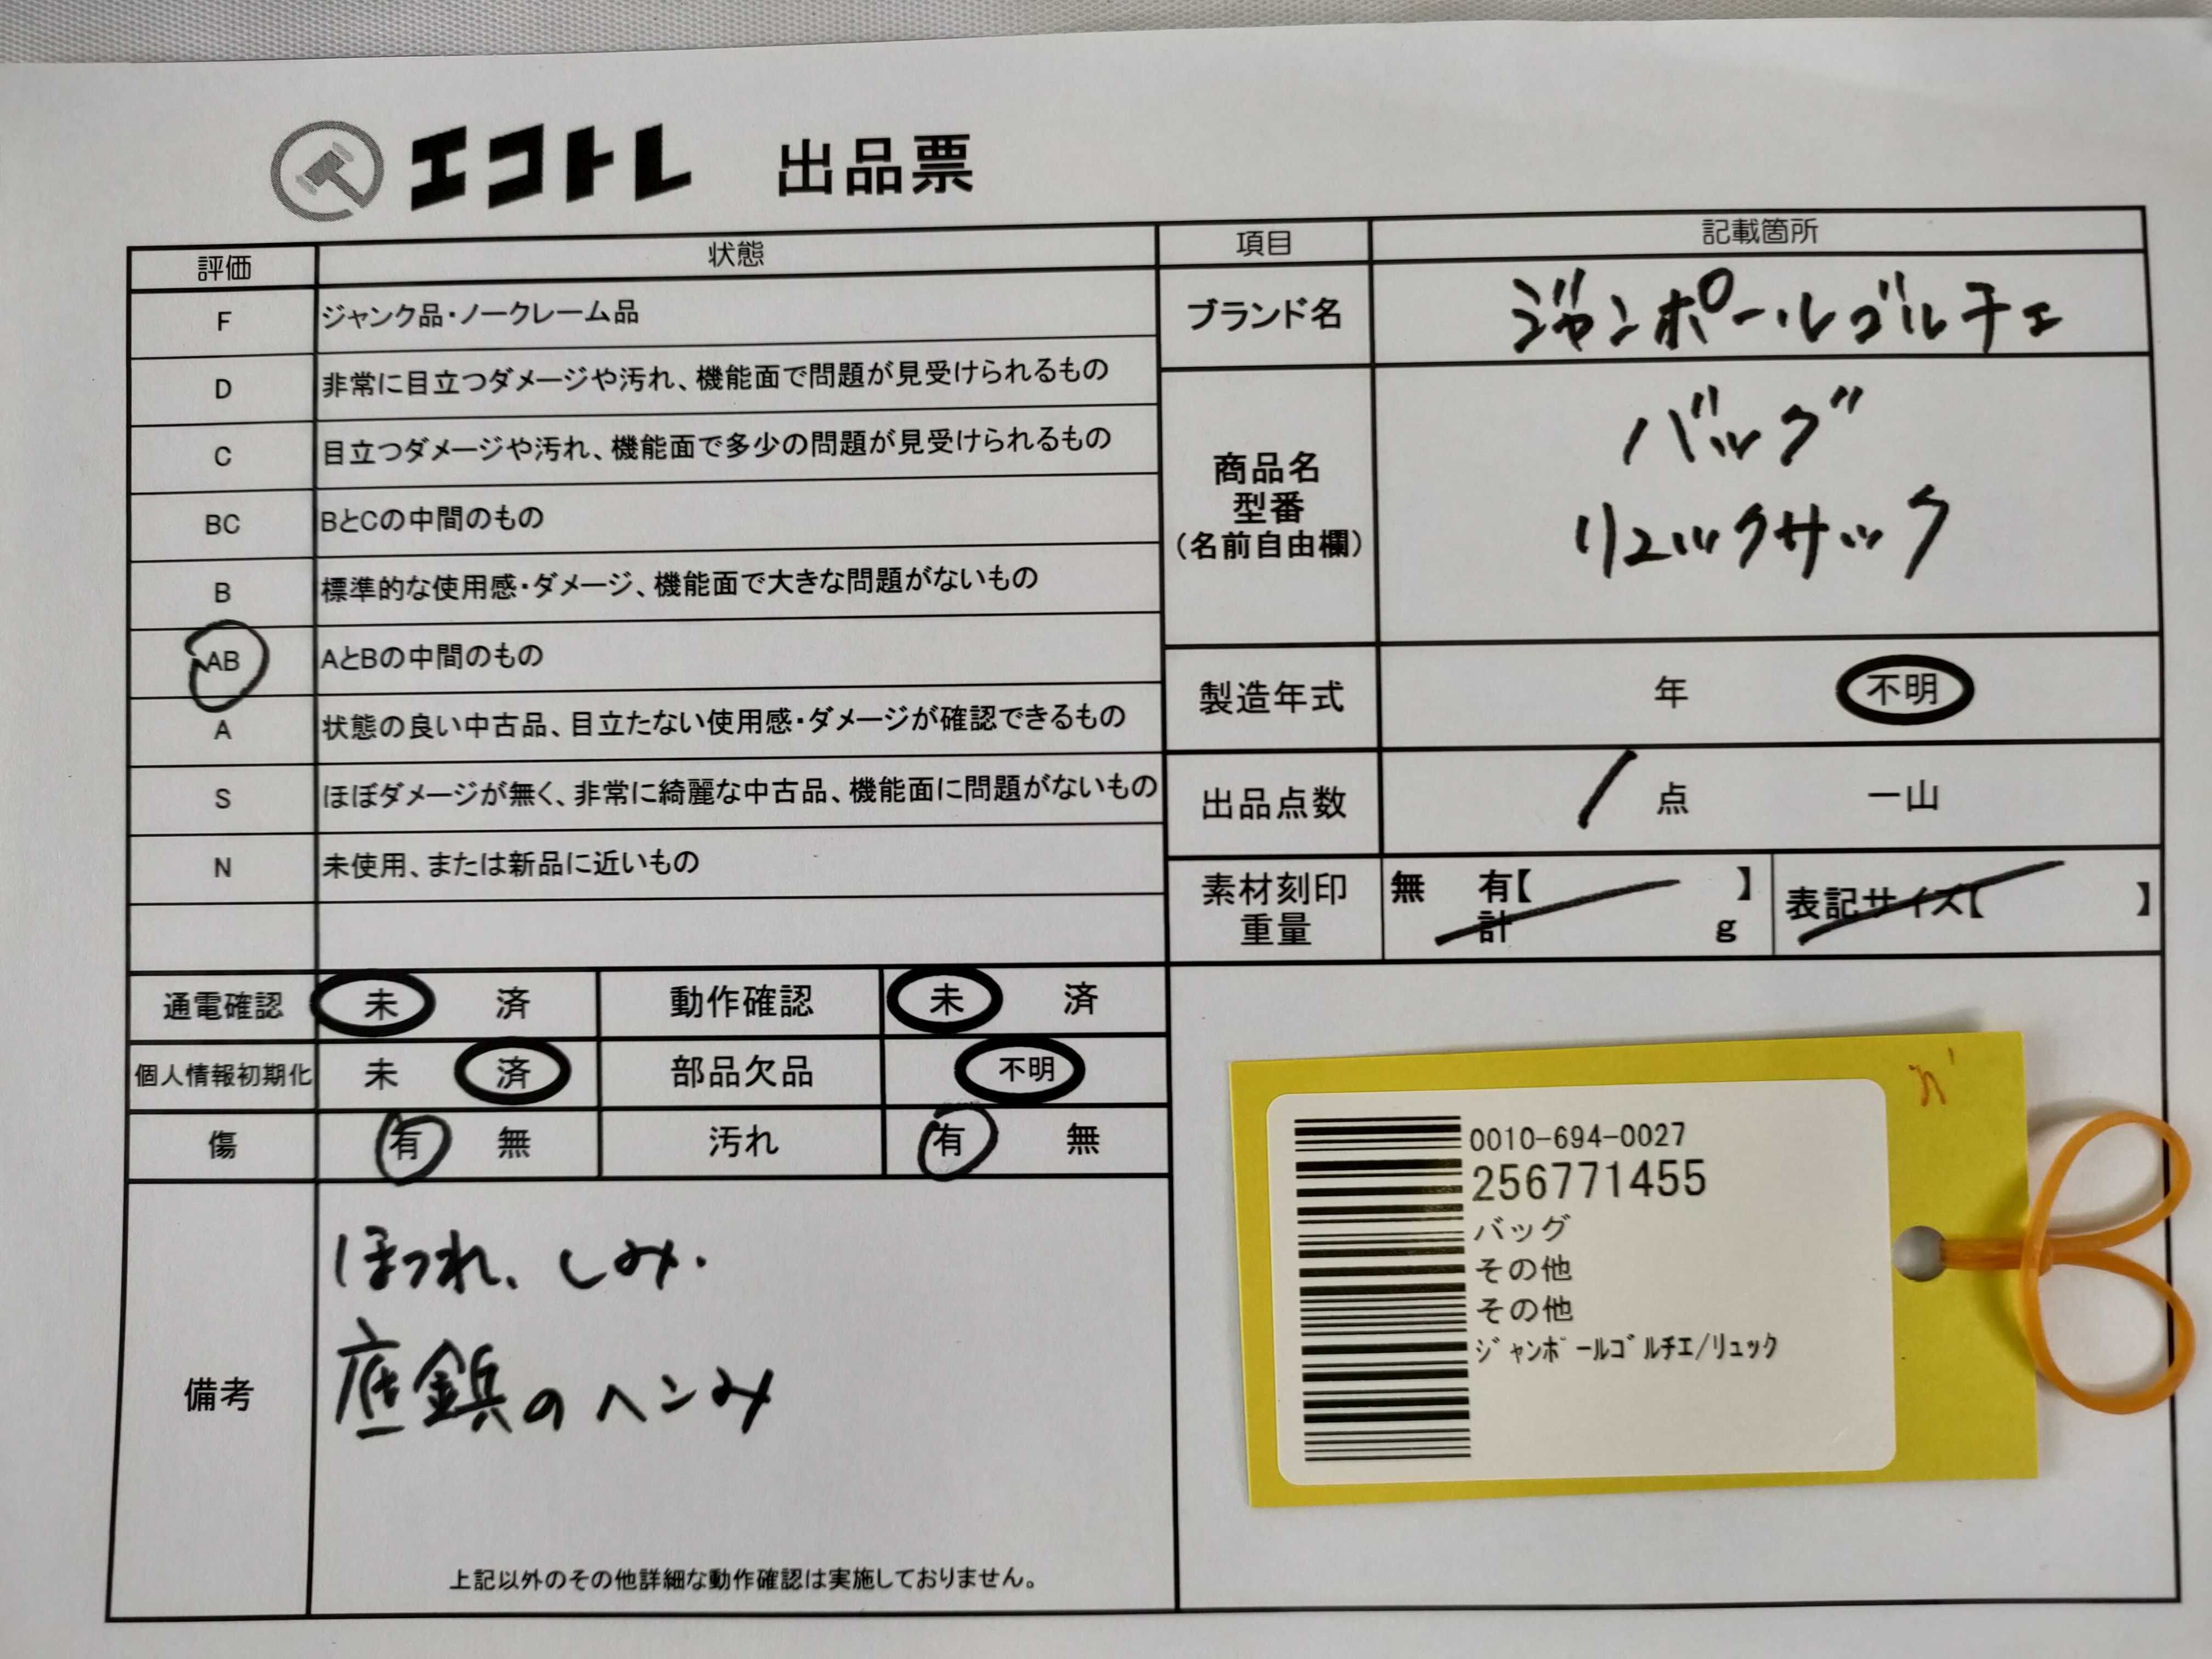 エコトレ 出品票
評価 状態
F ジャンク品・ノークレーム品
D 非常に目立つダメージや汚れ、機能面で問題が見受けられるもの
C 目立つダメージや汚れ、機能面で多少の問題が見受けられるもの
BC BとCの中間のもの
B 標準的な使用感・ダメージ、機能面で大きな問題がないもの
AB AとBの中間のもの
A 状態の良い中古品、目立たない使用感・ダメージが確認できるもの
S ほぼダメージが無く、非常に綺麗な中古品、機能面に問題がないもの
N 未使用、または新品に近いもの
項目 記載箇所
ブランド名 ジャンポールゴルチェ
商品名
型番
(名前自由欄)
バッグ
リュックサック
製造年式 年 不明
出品点数 1 点 一山
素材刻印
重量
無 有【 】
計 g
表記サイズ【 】
通電確認 未 済 動作確認 未 済
個人情報初期化 未 済 部品欠品 不明
傷 有 無 汚れ 有 無
備考
ほつれ、しみ.
底鋲のヘンみ
上記以外のその他詳細な動作確認は実施しておりません。
0010-694-0027
256771455
バッグ
その他
その他
ジャンポールゴルチエ/リュック